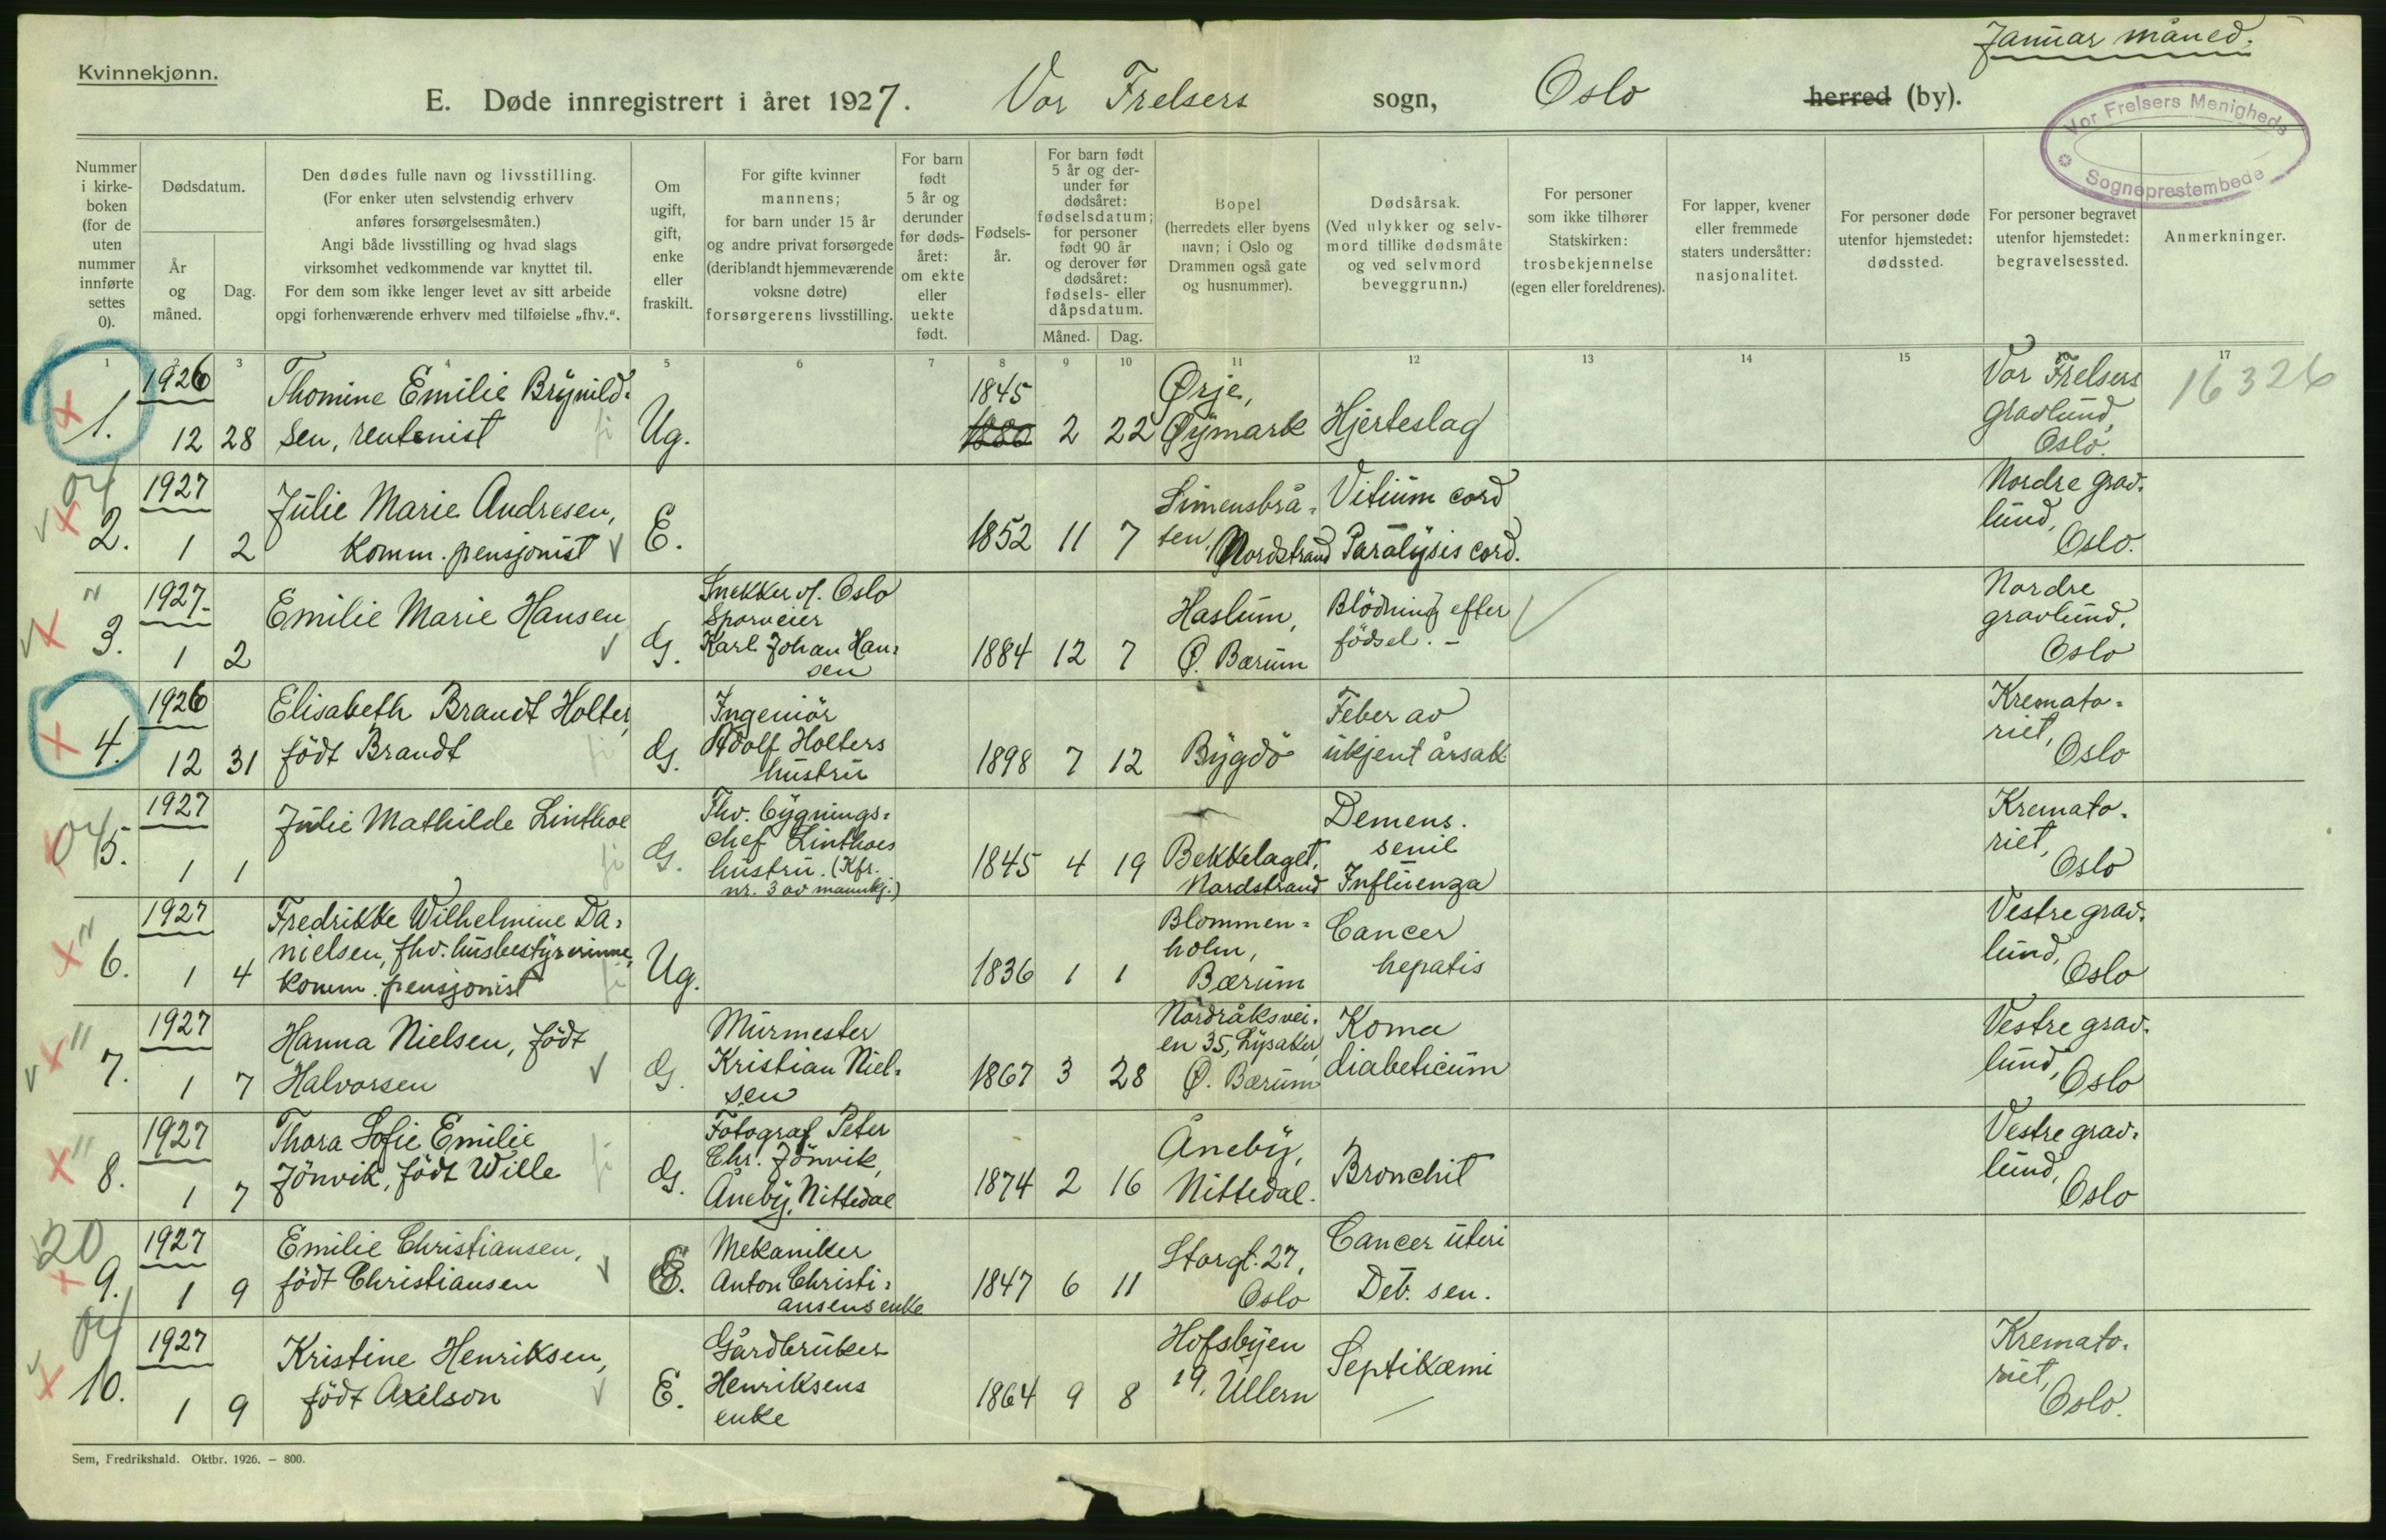 Januar måned.
Kvinnekjønn.
E. Døde innregistrert i året 1927. Vor Frelsers sogn, Oslo herred (by).
Vor Frelsers Menigheds Sogneprestembede
Nummer i kirkeboken (for de uten nummer innførte settes 0).
Dødsdatum.
År og måned.
Dag.
Den dødes fulle navn og livsstilling.
(For enker uten selvstendig erhverv
anføres forsørgelsesmåten.)
Angi både livsstilling og hvad slags
virksomhet vedkommende var knyttet til.
For dem som ikke lenger levet av sitt arbeide
opgi forhenværende erhverv med tilføielse „fhv.“.
Om ugift, gift, enke eller fraskilt.
For gifte kvinner
mannens;
for barn under 15 år
og andre privat forsørgede
(deriblandt hjemmeværende
voksne døtre)
forsørgerens livsstilling.
For barn født 5 år og derunder før dødsåret: om ekte eller uekte født.
Fødselsår.
For barn født 5 år og derunder før dødsåret: fødselsdatum; for personer født 90 år og derover før dødsåret: fødsels- eller dåpsdatum.
Måned. Dag.
Bopel
(herredets eller byens
navn; i Oslo og
Drammen også gate
og husnummer).
Dødsårsak.
(Ved ulykker og selvmord tillike dødsmåte
og ved selvmord
beveggrunn.)
For personer
som ikke tilhører
Statskirken:
trosbekjennelse
(egen eller foreldrenes).
For lapper, kvener
eller fremmede
staters undersåtter:
nasjonalitet.
For personer døde
utenfor hjemstedet:
dødssted.
For personer begravet
utenfor hjemstedet:
begravelsessted.
Anmerkninger.
1 2 3 4 5 6 7 8 9 10 11 12 13 14 15 16 17
1. 1926 12 28 Thomine Emilie Brynildsen, rentenist Ug. 1845 1880 2 22 Ørje, Øymark Hjerteslag Vor Frelsers gravlund, Oslo. 16326
04 2. 1927 1 2 Julie Marie Andresen, komm. pensjonist E. 1852 11 7 Simensbråten, Nordstrand Vitium cord Paralysis cord. Nordre gravlund, Oslo.
3. 1927 1 2 Emilie Marie Hansen G. Snekker v/. Oslo Sporveier Karl Johan Hansen 1884 12 7 Haslum, Ø. Bærum Blödning efter födsel. Nordre gravlund, Oslo
4. 1926 12 31 Elisabeth Brandt Holter, född Brandt G. Ingeniör Adolf Holters hustru 1898 7 12 Bygdö Feber av ukjent årsak Krematoriet, Oslo
04 5. 1927 1 1 Julie Mathilde Linthoe G. Fhv. bygningschef Linthoes hustru. (Kfr. nr. 3 av mannkj.) 1845 4 19 Bekkelaget, Nordstrand Demens. senil Influenza Krematoriet, Oslo
6. 1927 1 4 Fredrikke Wilhelmine Danielsen, fhv. husbestyrerinne, komm. pensjonist Ug. 1836 1 1 Blommenholm, Bærum Cancer hepatis Vestre gravlund, Oslo
7. 1927 1 7 Hanna Nielsen, födt Halvorsen G. Murmester Kristian Nielsen 1867 3 28 Nordråksveien 35, Lysaker, Ø. Bærum Koma diabeticum Vestre gravlund, Oslo
8. 1927 1 7 Thora Sofie Emilie Jönvik, födt Wille G. Fotograf Peter Chr. Jönvik, Åneby, Nittedal 1874 2 16 Åneby, Nittedal. Bronchit Vestre gravlund, Oslo
20 9. 1927 1 9 Emilie Christiansen, födt Christiansen E. Mekaniker Anton Christiansens enke 1847 6 11 Storgt. 27, Oslo Cancer uteri Deb. sen.
04 10. 1927 1 9 Kristine Henriksen, födt Axelson E. Gårdbruker Henriksens enke 1864 9 8 Hofsbyen 19, Ullern Septikæmi Krematoriet, Oslo.
Sem, Fredrikshald. Oktbr. 1926. – 800.